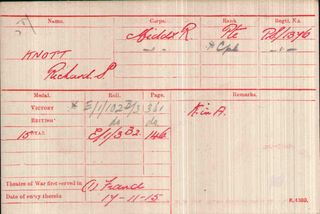 Name. Corps. Rank. Regtl. No.
Middx R. Pte
KNOTT -"- * Cpl -"-
Richard S.
Medal. Roll. Page.
VICTORY * E/1/102 B31 361 K in A.
BRITISH do do
15 STAR E/1/3 B2. 146
Theatre of War first served in (1) France
Date of entry therein 17-11-15
K.1380.